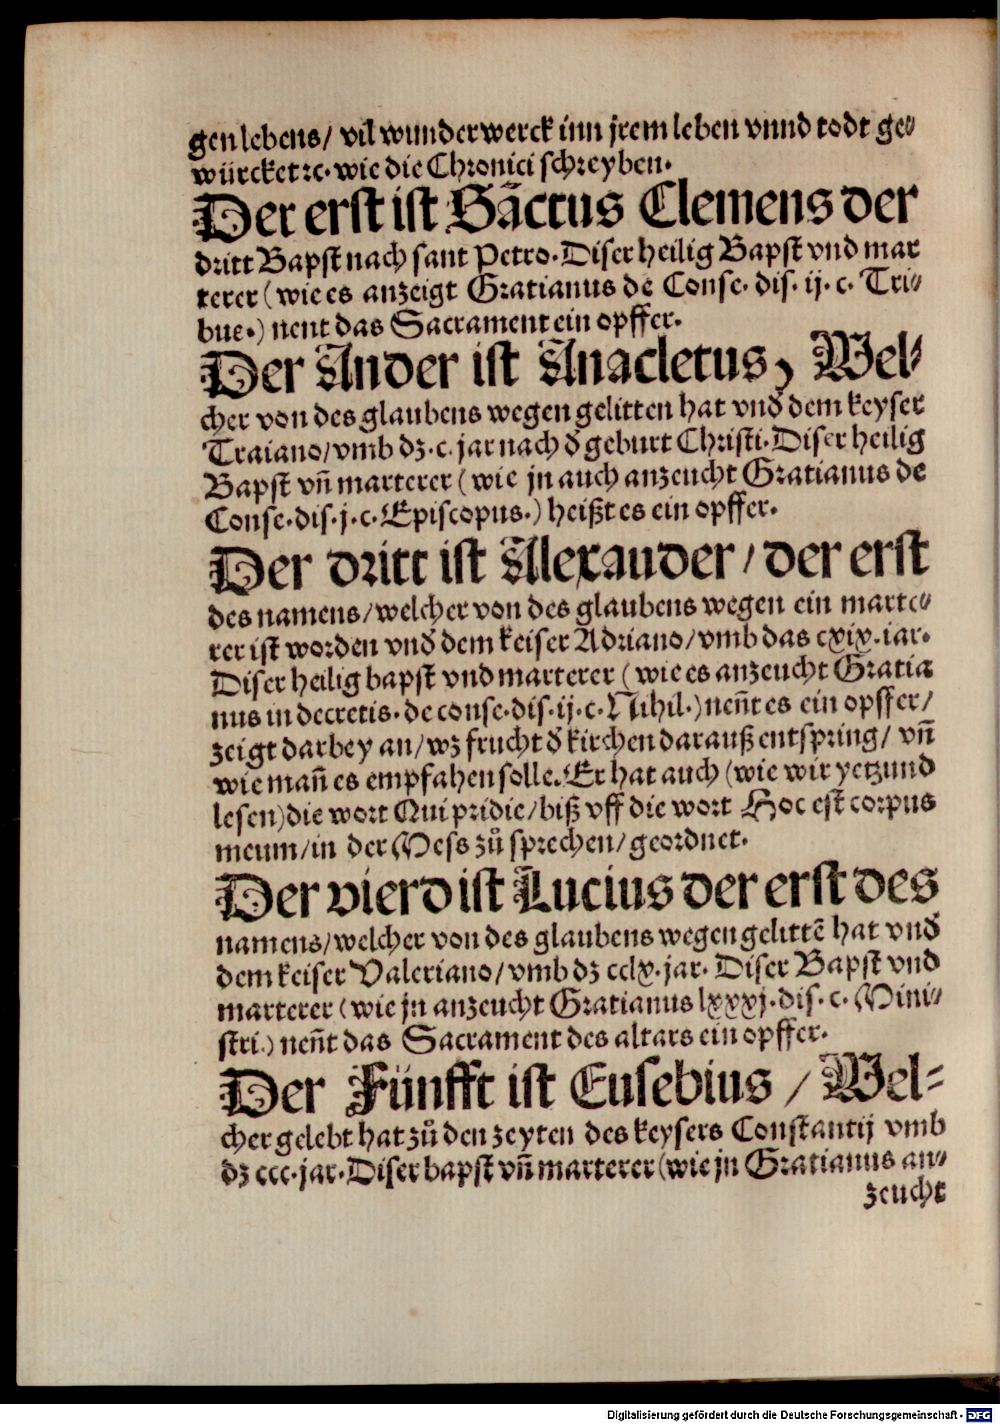 gen lebens/ vil wunderwerck inn jrem leben vnnd todt ge⸗
würcket ꝛc. wie die Chronici schreyben.
Der erst ist Sāctus Clemens der
dritt Bapst nach sant Petro. Diser heilig Bapst vnd mar
terer (wie es anzeigt Gratianus de Conse. dis. ij. c. Tri⸗
bue.) nent das Sacrament ein opffer.
Der Ander ist Anacletus, Wel⸗
cher von des glaubens wegen gelitten hat vnď dem keyser
Traiano/ vmb dz .c. jar nach ď geburt Christi. Diser heilig
Bapst vñ marterer (wie jn auch anzeucht Gratianus de
Conse. dis. j. c. Episcopus.) heißt es ein opffer.
Der dritt ist Alexander/ der erst
des namens/ welcher von des glaubens wegen ein marte⸗
rer ist worden vnď dem keiser Adriano/ vmb das cxix. iar.
Diser heilig bapst vnd marterer (wie es anzeucht Gratia
nus in decretis. de conse. dis. ij. c. Nihil.) neñt es ein opffer/
zeigt darbey an/ wz frucht ď kirchen darauß entspring/ vñ
wie mañ es empfahen solle. Er hat auch (wie wir yetzund
lesen) die wort Qui pridie/ biß vff die wort Hoc est corpus
meum/ in der Mess zů sprechen/ geordnet.
Der vierd ist Lucius der erst des
namens/ welcher von des glaubens wegen gelittē hat vnď
dem keiser Valeriano/ vmb dz cclx. jar. Diser Bapst vnd
marterer (wie jn anzeucht Gratianus lxxxj. dis. c. Mini⸗
stri.) neñt das Sacrament des altars ein opffer.
Der Fünfft ist Eusebius / Wel⸗
cher gelebt hat zů den zeyten des keysers Constantij vmb
dz ccc. jar. Diser bapst vñ marterer (wie jn Gratianus an⸗
zeucht
Digitalisierung gefördert durch die Deutsche Forschungsgemeinschaft - DFG